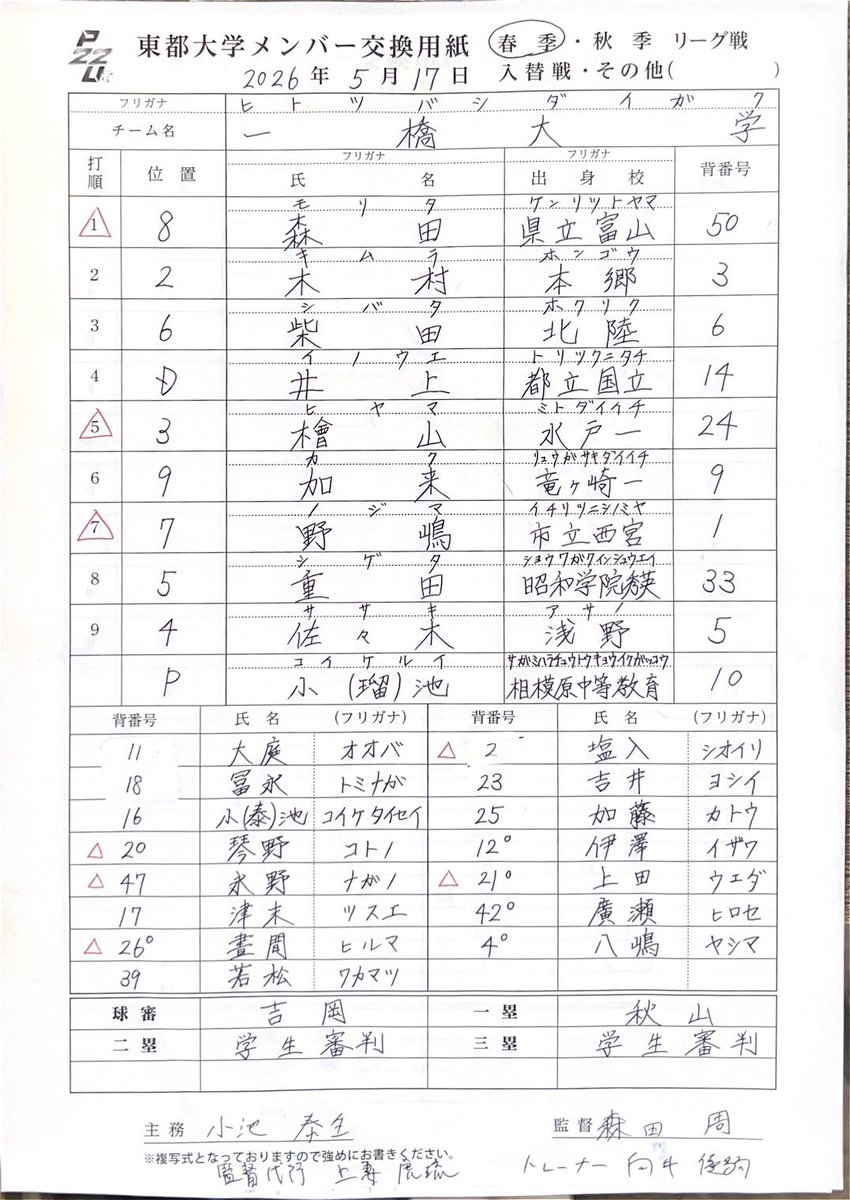 東都大学メンバー交換用紙 春季・秋季 リーグ戦
2026年 5月 17日 入替戦・その他( )
フリガナ ヒトツバシダイガク
チーム名 一橋大学
打順 位置 フリガナ 氏名 フリガナ 出身校 背番号
モリタ ケンリツトヤマ
1 8 森田 県立富山 50
キムラ ホンゴウ
2 2 木村 本郷 3
シバタ ホクリク
3 6 柴田 北陸 6
イノウエ トリツクニタチ
4 D 井上 都立国立 14
ヒヤマ ミトダイイチ
5 3 檜山 水戸一 24
カク リュウガサキダイイチ
6 9 加来 竜ヶ崎一 9
ノジマ イチリツニシノミヤ
7 7 野嶋 市立西宮 1
シゲタ ショウワガクインシュウエイ
8 5 重田 昭和学院秀英 33
ササキ アサノ
9 4 佐々木 浅野 5
コイケルイ サガミハラチュウトウキョウイクガッコウ
P 小(瑠)池 相模原中等教育 10
背番号 氏名 (フリガナ) 背番号 氏名 (フリガナ)
11 大庭 オオバ △ 2 塩入 シオイリ
18 冨永 トミナガ 23 吉井 ヨシイ
16 小(泰)池 コイケタイセイ 25 加藤 カトウ
△ 20 琴野 コトノ 12° 伊澤 イザワ
△ 47 永野 ナガノ △ 21° 上田 ウエダ
17 津末 ツスエ 42° 廣瀬 ヒロセ
△ 26° 晝間 ヒルマ 4° 八嶋 ヤシマ
39 若松 ワカマツ
球審 吉岡 一塁 秋山
二塁 学生審判 三塁 学生審判
主務 小池 泰生 監督 森田 周
※複写式となっておりますので強めにお書きください。
監督代行 上妻 トレーナー